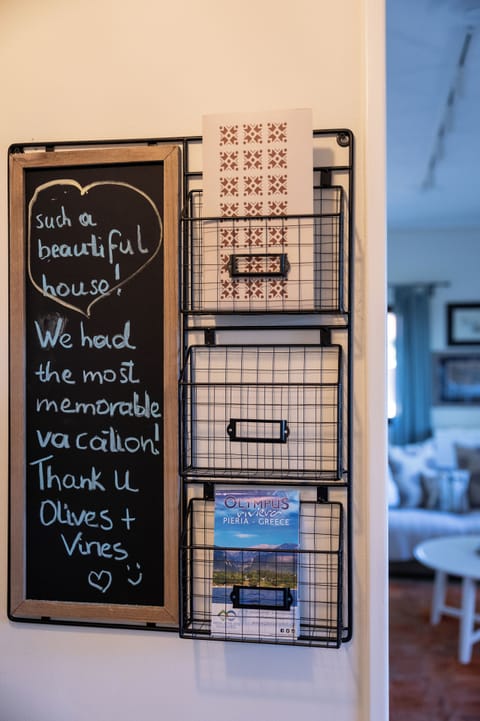 such a
beautiful
house!
We had
the most
memorable
vacation!
Thank u
Olives +
Vines
OLYMPUS
riviera
PIERIA - GREECE